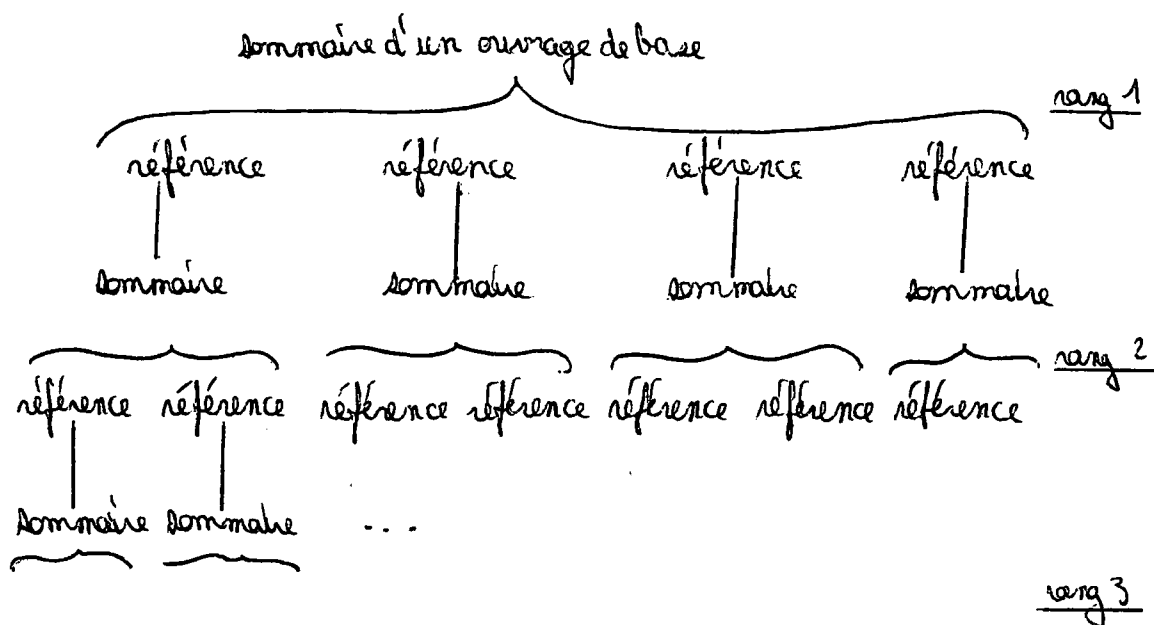 sommaire d'un ouvrage de base
rang 1
référence référence référence référence
sommaire sommaire sommaire sommaire
rang 2
référence référence référence référence référence référence référence
sommaire sommaire ...
rang 3